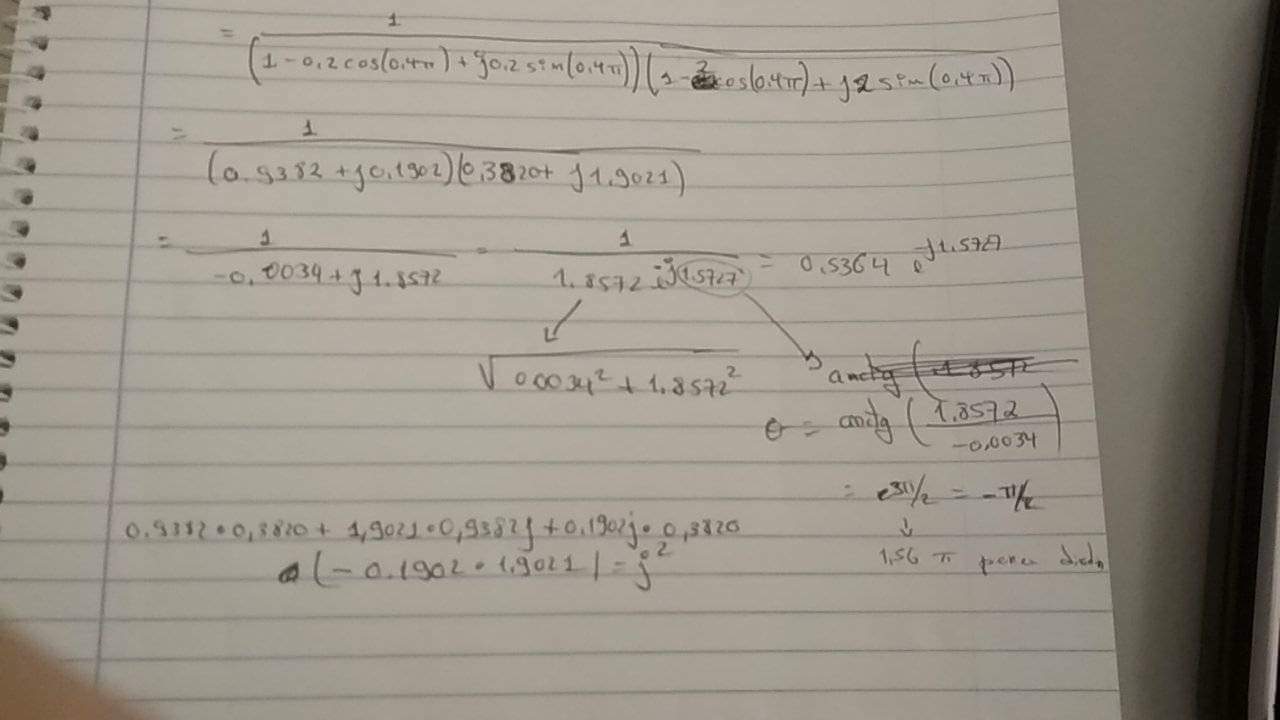 = 1 / (1 - 0,2 cos(0,4π) + j0,2 sin(0,4π)) (1 - 2 cos(0,4π) + j2 sin(0,4π))
= 1 / (0.9382 + j0.1902)(0,3820 + j1,9021)
= 1 / -0,0034 + j1.8572 = 1 / 1.8572 e^j(1.5727) = 0,5364 e^j1.5727
√0.0034² + 1.8572²
arctg (1.8572
θ = arctg (1.8572 / -0,0034)
= e3π/2 = -π/2
0.9382 • 0,3820 + 1,9021 • 0,9382j + 0.1902j • 0,3820
(- 0.1902 • 1,9021) = j²
1,56 π